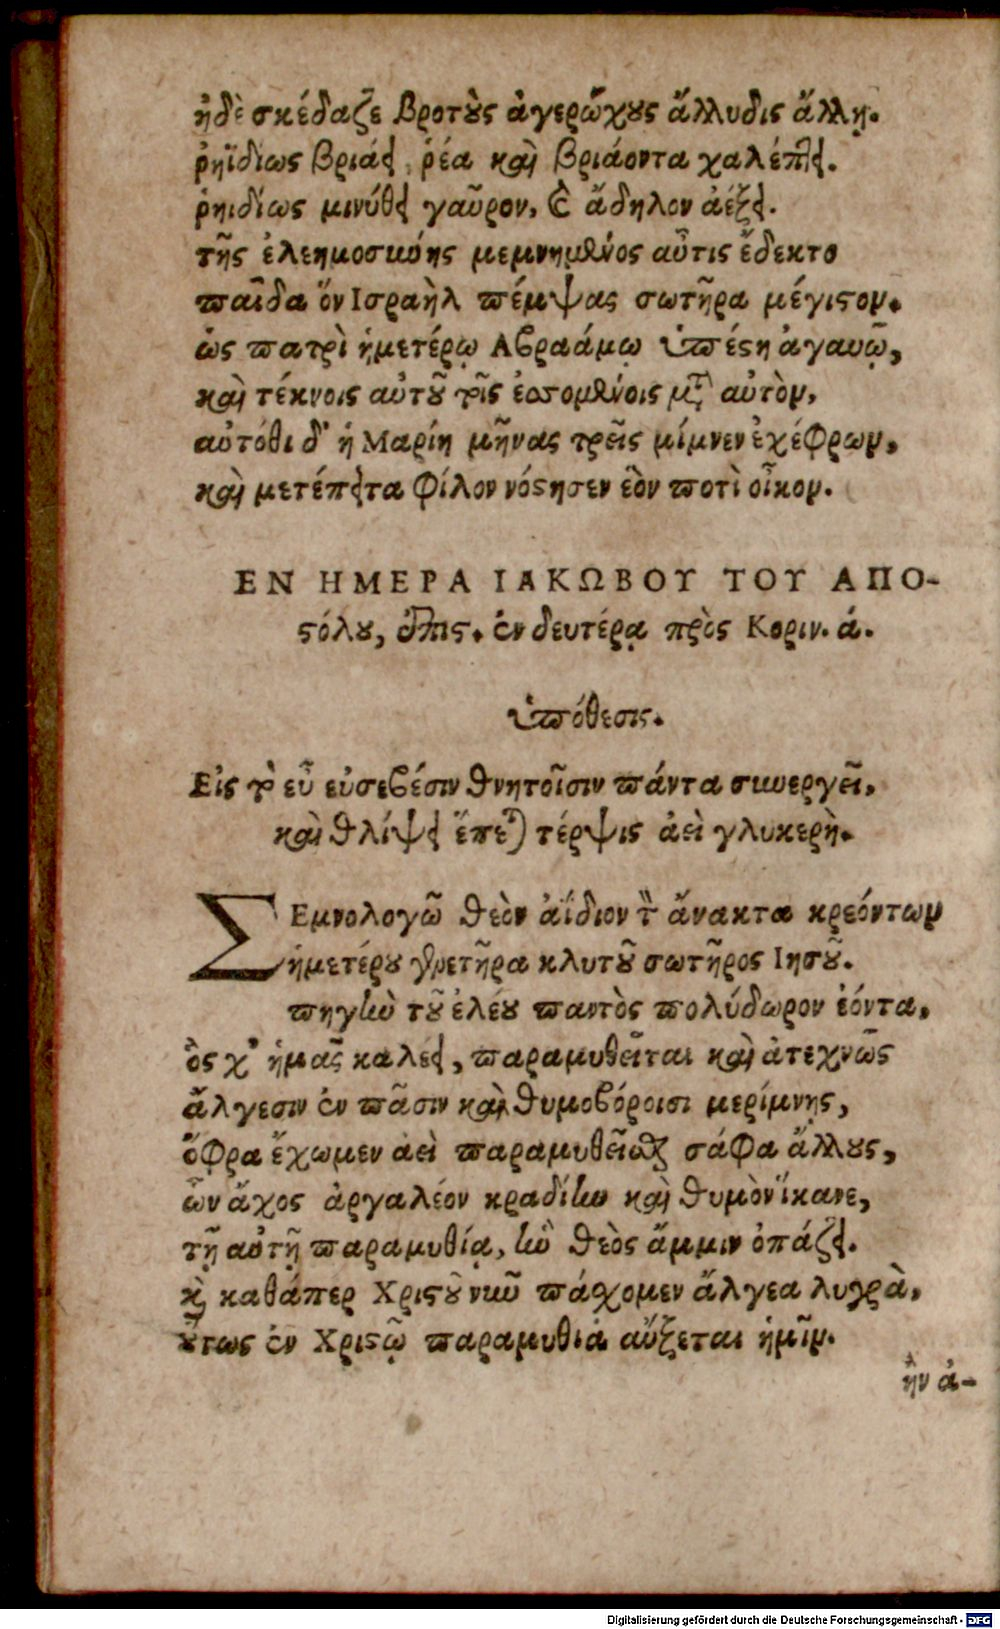 ἠδὲ σκέδαζε βροτοὺς ἀγερώχους ἄλλυδις ἄλλῃ.
ῥηϊδίως βριάει, ῥέα καὶ βριάοντα χαλέπτει.
ῥηιδίως μινύθει γαῦρον, καὶ ἄδηλον ἀέξει.
τῆς ἐλεημοσύνης μεμνημένος αὖτις ἔδεκτο
παῖδα ὃν Ισραὴλ πέμψας σωτῆρα μέγιστον.
ὡς πατρὶ ἡμετέρῳ Αβραάμῳ ὑπέστη ἀγαυῷ,
καὶ τέκνοις αὐτοῦ τοῖς ἐσσομένοις μετ' αὐτὸν,
αὐτόθι δ' ἡ Μαρίη μῆνας τρεῖς μίμνεν ἐχέφρων,
καὶ μετέπειτα φίλον νόστησεν ἑὸν ποτὶ οἶκον.
ΕΝ ΗΜΕΡΑ ΙΑΚΩΒΟΥ ΤΟΥ ΑΠΟ-
στόλου, ἐπις. ἐν δευτέρᾳ πρὸς Κοριν. ά.
ὑπόθεσις.
Εἰς τὸ εὖ εὐσεβέσιν θνητοῖσιν πάντα συνεργεῖ,
καὶ θλίψει ἕπεται τέρψις ἀεὶ γλυκερὴ.
ΣΕμνολογῶ θεὸν ἀΐδιον τὸν ἄνακτα κρεόντων
ἡμετέρου γενετῆρα κλυτοῦ σωτῆρος Ιησοῦ.
πηγὴν τοῦ ἐλέου παντὸς πολύδωρον ἐόντα,
ὃς χ' ἡμᾶς καλέει, παραμυθεῖται καὶ ἀτεχνῶς
ἄλγεσιν ἐν πᾶσιν καὶ θυμοβόροισι μερίμνῃς,
ὄφρα ἔχωμεν ἀεὶ παραμυθεῖσθαι σάφα ἄλλους,
ὧν ἄχος ἀργαλέον κραδίην καὶ θυμὸν ἵκανε,
τῇ αὐτῇ παραμυθίᾳ, ἣν θεὸς ἄμμιν ὀπάζει.
καὶ καθάπερ Χριστοῦ νῦν πάσχομεν ἄλγεα λυγρὰ,
οὕτως ἐν Χριστῷ παραμυθιὰ αὔξεται ἡμῖν.
ἢν ἀ-
Digitalisierung gefördert durch die Deutsche Forschungsgemeinschaft - DFG